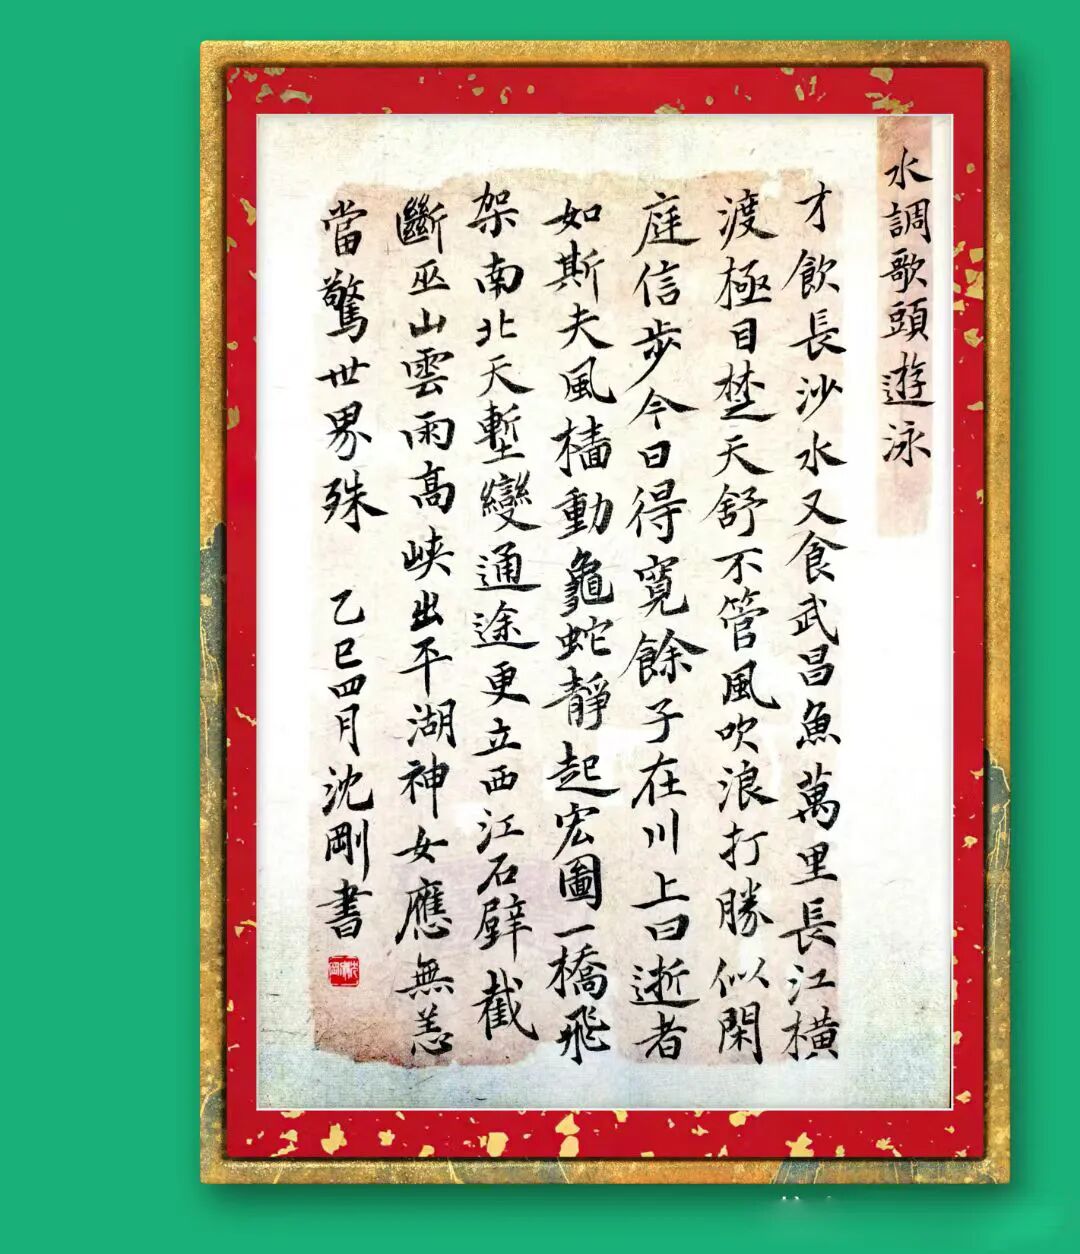 水調歌頭遊泳
才飲長沙水又食武昌魚萬里長江橫
渡極目楚天舒不管風吹浪打勝似閑
庭信步今日得寬餘子在川上曰逝者
如斯夫風檣動龜蛇靜起宏圖一橋飛
架南北天塹變通途更立西江石壁截
斷巫山雲雨高峽出平湖神女應無恙
當驚世界殊 乙巳四月沈剛書